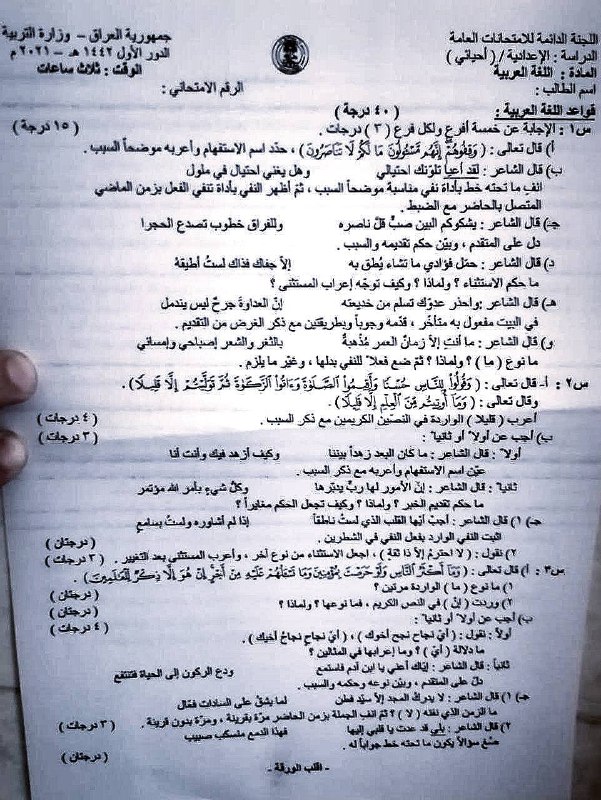 اللجنة الدائمة للامتحانات العامة
الدراسة : الإعدادية / ( أحيائي )
المادة : اللغة العربية
اسم الطالب :
جمهورية العراق - وزارة التربية
الدور الأول ١٤٤٢ هـ - ٢٠٢١ م
الوقت : ثلاث ساعات
الرقم الامتحاني :
قواعد اللغة العربية : ( ٤٠ درجة )
س١ : الإجابة عن خمسة أفرع ولكل فرع ( ٣ ) درجات . ( ١٥ درجة )
أ) قال تعالى : ( وَقِفُوهُمْ إِنَّهُم مَّسْئُولُونَ مَا لَكُمْ لَا تَنَاصَرُونَ ) ، حدّد اسم الاستفهام وأعربه موضحاً السبب .
ب) قال الشاعر : لقد أعيا تلوّنك احتيالي وهل يغني احتيال في ملول
انفِ ما تحته خط بأداة نفي مناسبة موضحاً السبب ، ثمّ أظهر النفي بأداة تنفي الفعل بزمن الماضي
المتصل بالحاضر مع الضبط .
جـ) قال الشاعر : يشكوكم البين صبٌّ قلّ ناصره وللفراق خطوب تصدع الحجرا
دل على المتقدم ، وبيّن حكم تقديمه والسبب .
د) قال الشاعر : حمّل فؤادي ما تشاء يُطق به إلاّ جفاك فذاك لستُ أطيقهُ
ما حكم الاستثناء ؟ ولماذا ؟ وكيف توجّه إعراب المستثنى ؟
هـ) قال الشاعر : واحذر عدوّك تسلم من خديعته إنّ العداوة جرحٌ ليس يندمل
في البيت مفعول به متأخّر ، قدّمه وجوباً وبطريقتين مع ذكر الغرض من التقديم .
و) قال الشاعر : ما أنتِ إلاّ زمانُ العمر مُذهبةٌ بالثغر والشعر إصباحي وإمساني
ما نوع ( ما ) ؟ ولماذا ؟ ثمّ ضع فعلاً للنفي بدلها ، وغيّر ما يلزم .
س٢ : أ- قال تعالى : ( وَقُولُوا لِلنَّاسِ حُسْنًا وَأَقِيمُوا الصَّلَوٰةَ وَءَاتُوا الزَّكَوٰةَ ثُمَّ تَوَلَّيْتُمْ إِلَّا قَلِيلًا ) .
وقال تعالى : ( وَمَا أُوتِيتُم مِّنَ الْعِلْمِ إِلَّا قَلِيلًا ) .
أعرب ( قليلا ) الواردة في النصّين الكريمين مع ذكر السبب . ( ٤ درجات )
ب) أجب عن أولاً أو ثانياً : ( ٣ درجات )
أولاً : قال الشاعر : ما كان البعد زهداً بيننا وكيف أزهد فيك وأنت أنا
عيّن اسم الاستفهام وأعربه مع ذكر السبب .
ثانياً : قال الشاعر : إنّ الأمور لها ربٌّ يدبّرها وكلّ شيءٍ بأمر الله مؤتمر
ما حكم تقديم الخبر ؟ ولماذا ؟ وكيف تجعل الحكم مغايراً ؟
جـ) ١) قال الشاعر : أجبْ أيّها القلب الذي لستُ ناطقاً إذا لم أشاوره ولستُ بسامعِ
اثبت النفي الوارد بفعل النفي في الشطرين . ( درجتان )
٢) نقول : ( لا أحترمُ إلاّ ذا ثقةٍ ) ، اجعل الاستثناء من نوع آخر ، وأعرب المستثنى بعد التغيير . ( ٣ درجات )
س٣ : أ) قال تعالى : ( وَمَا أَكْثَرُ النَّاسِ وَلَوْ حَرَصْتَ بِمُؤْمِنِينَ وَمَا تَسْأَلُهُمْ عَلَيْهِ مِنْ أَجْرٍ إِنْ هُوَ إِلَّا ذِكْرٌ لِّلْعَالَمِينَ ) .
١) ما نوع ( ما ) الواردة مرتين ؟ ( درجتان )
٢) وردت ( إنْ ) في النص الكريم ، فما نوعها ؟ ولماذا ؟ ( درجتان )
ب) أجب عن أولاً أو ثانياً : ( ٤ درجات )
أولاً : نقول : ( أيّ نجاح نجح أخوك ) ، ( أيّ نجاح نجاحُ أخيك ) .
ما دلالة ( أيّ ) ؟ وما إعرابها في المثالين ؟
ثانياً : قال الشاعر : إيّاك أعني يا ابن آدم فاستمع ودع الركون إلى الحياة فتنتفع
دل على المتقدم ، وبيّن نوعه وحكمه والسبب .
جـ) ١) قال الشاعر : لا يدرك المجد إلاّ سيّد فطن لما يشقّ على السادات فعّال
ما الزمن الذي نفته ( لا ) ؟ ثمّ انف الجملة بزمن الحاضر مرّة بقرينة ، ومرّة بدون قرينة . ( ٣ درجات )
٢) قال الشاعر : بلى قد عدت يا قلبي إليها فهذا الدمع منسكب صبيب
صُغ سؤالاً يكون ما تحته خط جواباً له . ( درجتان )
- اقلب الورقة -